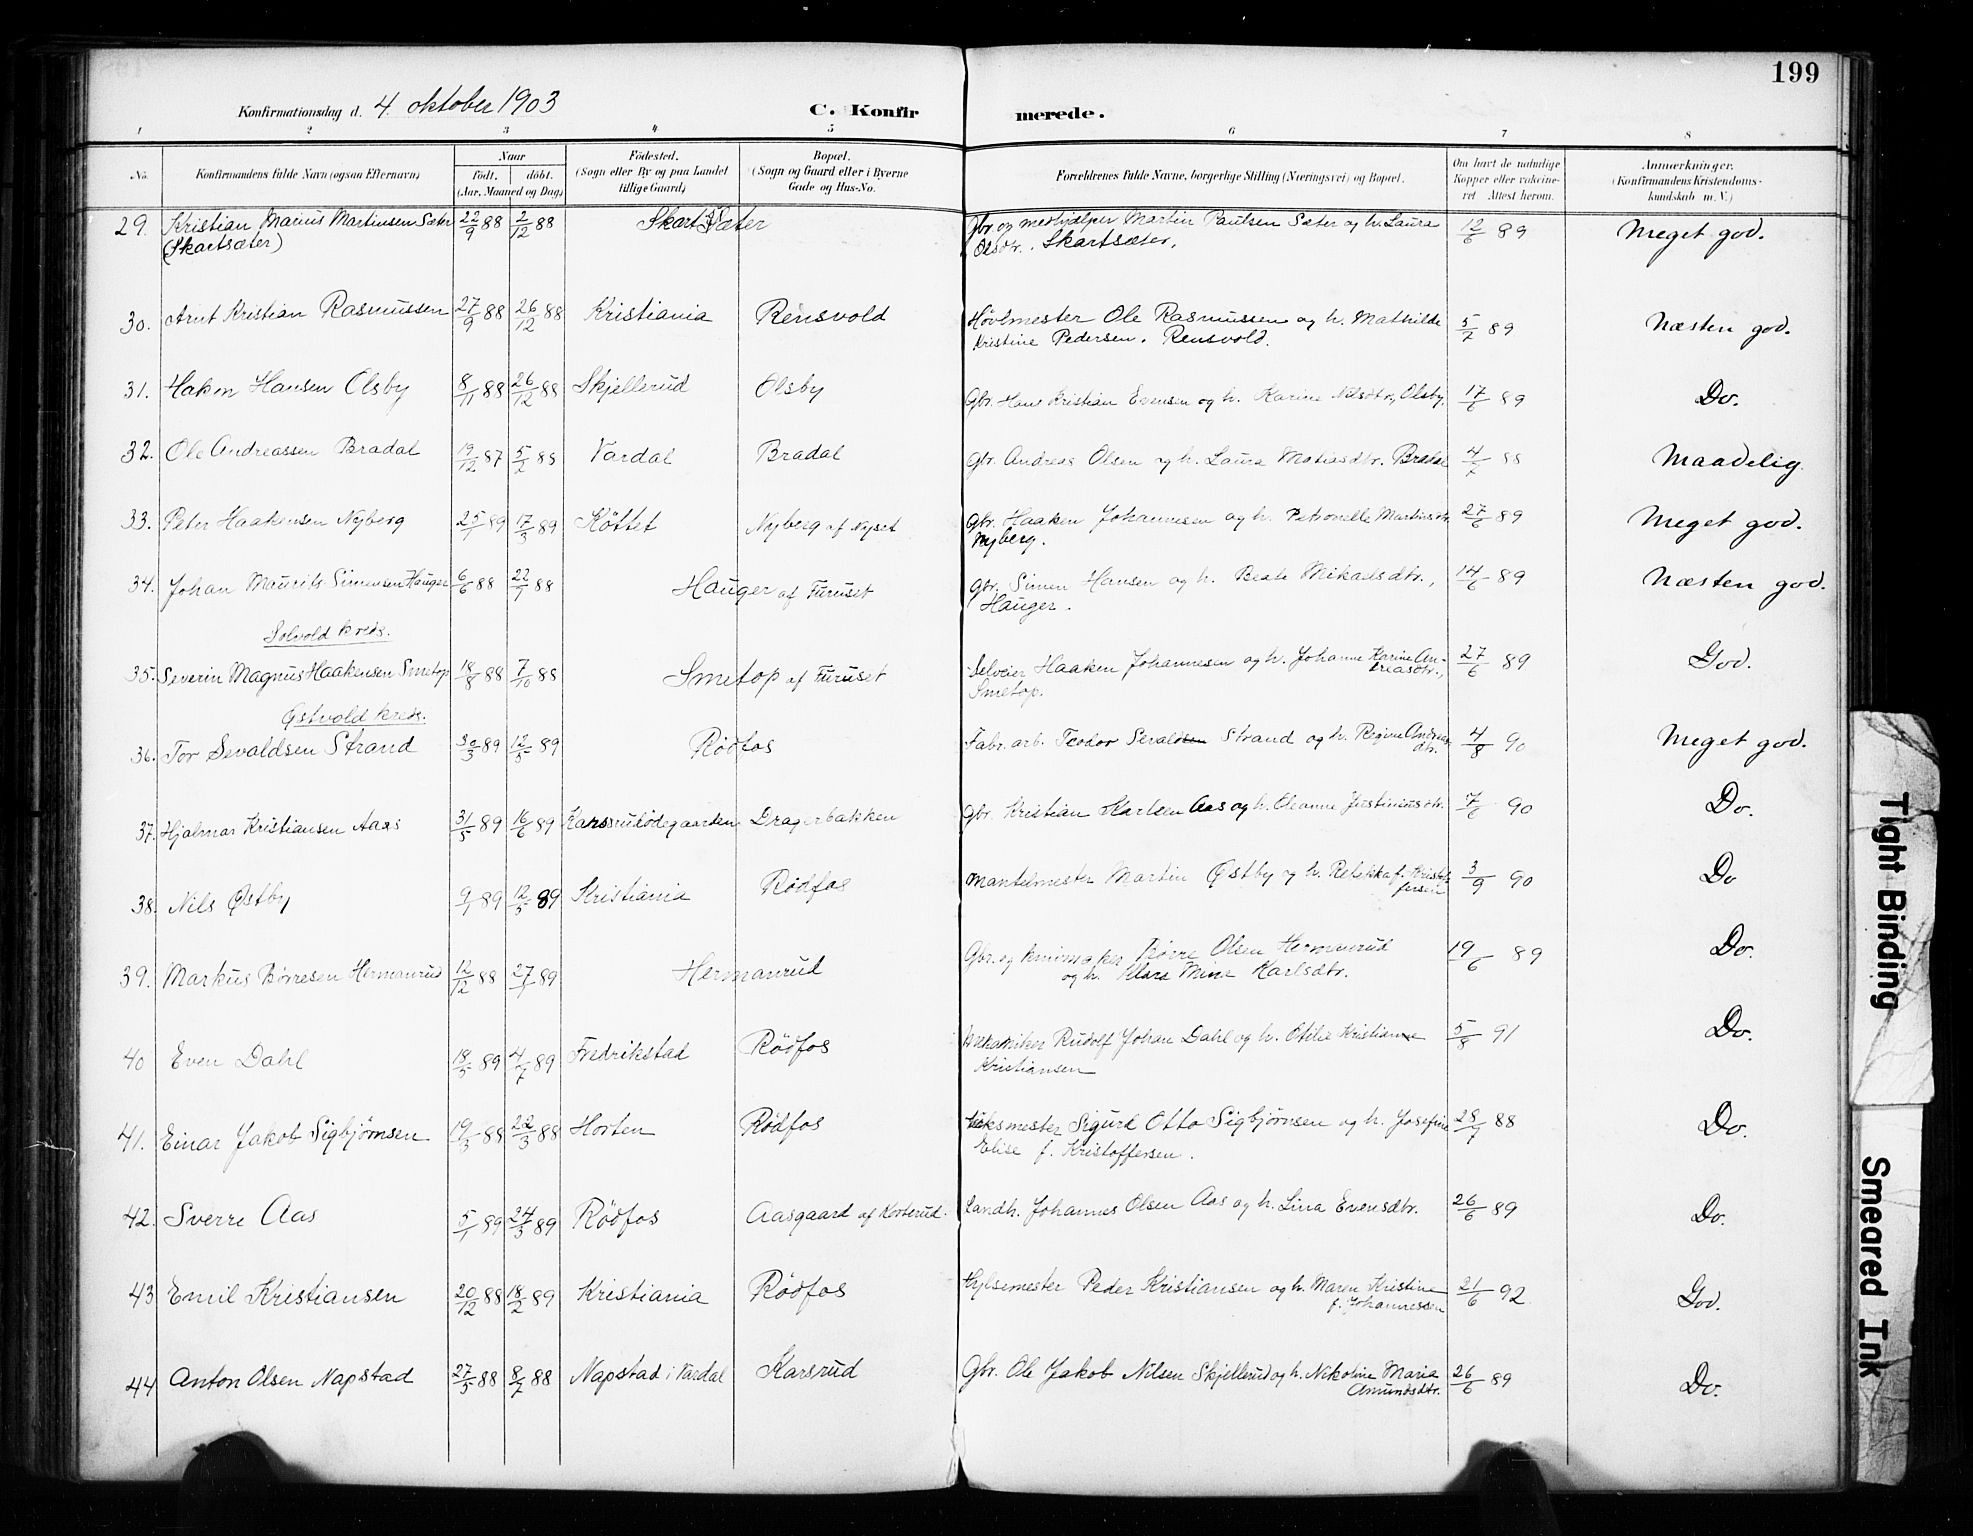 199
Konfirmationsdag d. 4. oktober 1903 C. Konfir merede.
1 2 3 4 5 6 7 8
No. Konfirmandens fulde Navn (ogsaa Efternavn) Naar født. døbt. (Aar, Maaned og Dag) Fødested. (Sogn eller By og paa Landet tillige Gaard) Bopæl. (Sogn og Gaard eller i Byerne Gade og Hus-No. Forældrenes fulde Navne, borgerlige Stilling (Næringsvei) og Bopæl. Om havt de naturlige Kopper eller vaccineret Attest herom. Anmærkninger. (Konfirmandens Kristendomskundskab m. V.)
29. Kristian Marius Martinsen Sæter 22/9 88 2/12 88 Skartsæter Gbr og medhjælper Martin Paulsen Sæter og h. Laura 12/6 89 Meget god.
(Skartsæter) Olsdtr. Skartsæter.
30. Arnt Kristian Rasmussen 27/9 88 26/12 88 Kristiania Rensvold Høvlmester Ole Rasmussen og h. Mathilde 5/2 89 Næsten god.
Kristine Pedersen. Rensvold.
31. Hakon Hansen Olsby 8/11 88 26/12 88 Skjellerud Olsby Gbr. Hans Kristian Evensen og h. Karine Nilsdtr, Olsby. 17/6 89 Do.
32. Ole Andreassen Bradal 19/12 87 5/2 88 Vardal Bradal Gbr. Andreas Olsen og h. Laura Matiasdtr. Bradal 4/7 88 Maadelig
33. Peter Haakensen Nyberg 25/1 89 17/3 89 Køttet Nyberg af Nyset Gbr. Haaken Johannesen og h. Petronelle Martinsdtr. 27/6 89 Meget god.
Nyberg.
34. Johan Maurits Simensen Hauger 6/6 88 22/7 88 Hauger af Furuset Gbr. Simen Hansen og h. Beate Mikaelsdtr., 14/6 89 Næsten god.
Hauger.
Solvold kreds.
35. Severin Magnus Haakensen Smetop 18/8 88 7/10 88 Smetop af Furuset Selveier Haaken Johannesen og h. Johanne Karine Andreasdtr., 27/6 89 God.
Smetop.
Østvold kreds.
36. Tor Sevaldsen Strand 30/3 89 12/5 89 Rødfos Fabr. arb. Teodor Strand og h. Regine Andreasdtr. 4/8 90 Meget god.
37. Hjalmar Kristiansen Aas 31/5 89 16/6 89 Karsrudødegaarden Dragerbakken Gbr. Kristian Karlsen Aas og h. Oleanne Justiniusdtr. 7/6 90 Do.
38. Nils Østby 9/1 89 12/5 89 Kristiania Rødfos Mantelmester Martin Østby og h. Rebekka f. Kristoffersen 3/9 90 Do
39. Markus Børresen Hermanrud 12/12 88 27/1 89 Hermanrud Gbr. og knivmaker Børre Olsen Hermanrud 19/6 89 Do.
og h. Klara Mine Karlsdtr.
40 Even Dahl 18/5 89 4/7 89 Fredrikstad Rødfos Mekaniker Rudolf Johan Dahl og h. Otilie Kristiane 5/8 91 Do.
Kristiansen
41. Einar Jakob Sigbjørnsen 19/3 88 22/3 88 Horten Rødfos Sigurd Otto Sigbjørnsen og h. Josefine 28/7 88 Do.
Elise f. Kristoffersen.
42. Sverre Aas 5/1 89 24/3 89 Rødfos Aasgaard af Korterud. Landh. Johannes Olsen Aas og h. Lina Evensdtr. 26/6 89 Do.
43 Emil Kristiansen 20/12 88 18/2 89 Kristiania Rødfos Hylsemester Peder Kristiansen og h. Maren Kristine 21/6 92. God.
f. Johannessen
44 Anton Olsen Napstad 27/5 88 8/7 88 Napstad i Vardal Karsrud Gbr. Ole Jakob Nilsen Skjellerud og h. Nikoline Maria 26/6 89 Do.
Amundsdtr.
Tight Binding
Smeared Ink